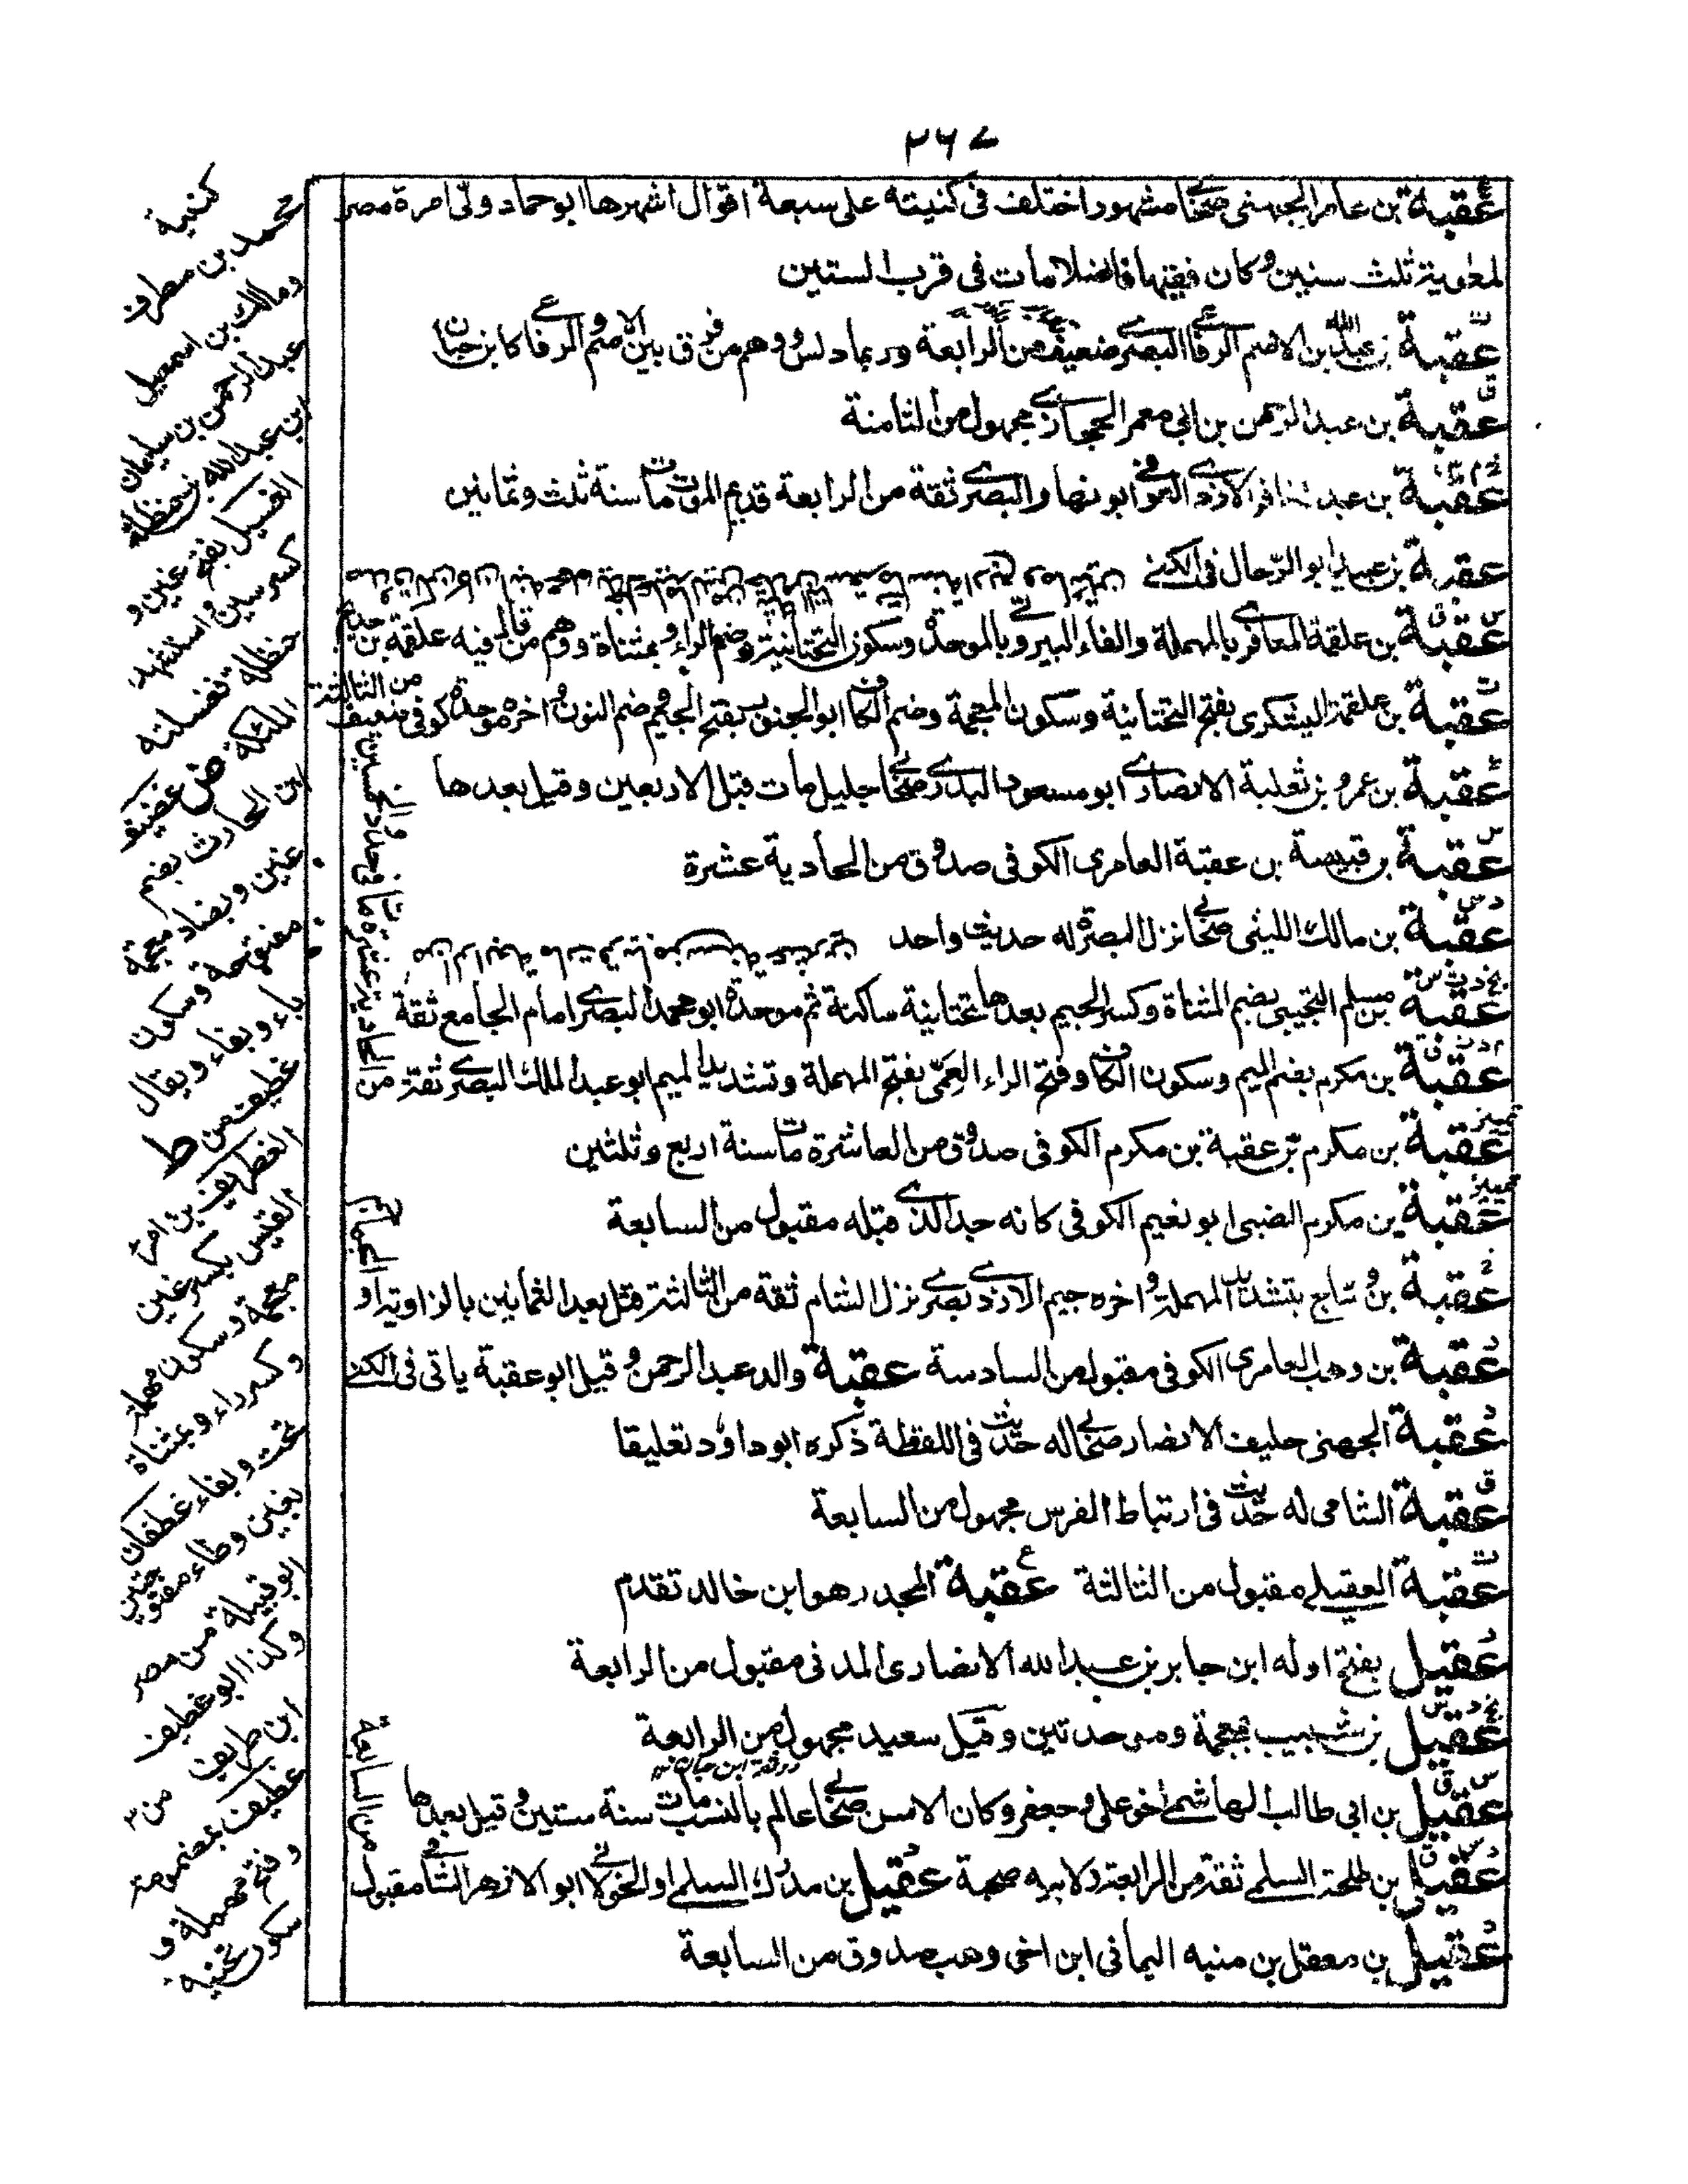 ٢٦٧
عقبة بن عامر الجهني صحابي مشهور اختلف في كنيته على سبعة اقوال اشهرها ابو حماد ولي امرة مصر
لمعوية ثلث سنين وكان فقيها فاضلا مات في قرب الستين
عقبة بن عبد الله بن الاصم الرفاعي البصري ضعيف من الرابعة وربما دلس ووهم من فرق بين الاصم والرفاعي كابن حبان
عقبة بن عبد الرحمن بن ابي معمر الحجازي مجهول من الثامنة
عقبة بن عبد الغافر الازدي العوذي ابو نهار البصري ثقة من الرابعة قديم الموت مات سنة ثلث وثمانين
عقبة بن عبيد ابو الرحال في الكنى
عقبة بن علقمة المعافري بالمهملة والفاء البيروتي بالموحدة وسكون التحتانية وضم الراء وبمثناة ووهم من قال فيه علقمة بن حديج
عقبة بن علقمة اليشكري بفتح التحتانية وسكون المعجمة وضم الكاف ابو الجنوب بفتح الجيم وضم النون واخره موحدة كوفي ضعيف
من الثالثة
عقبة بن عمرو بن ثعلبة الانصاري ابو مسعود البدري صحابي جليل مات قبل الاربعين وقيل بعدها
عقبة بن قبيصة بن عقبة العامري الكوفي صدوق من الحادية عشرة
عقبة بن مالك الليثي صحابي نزل البصرة له حديث واحد
عقبة بن مسلم التجيبي بضم المثناة وكسر الجيم بعدها تحتانية ساكنة ثم موحدة ابو محمد البصري امام الجامع ثقة
عقبة بن مكرم بضم الميم وسكون الكاف وفتح الراء العمي بفتح المهملة وتشديد الميم ابو عبد الملك البصري ثقة من
الحادية عشرة مات في حدود الخمسين
عقبة بن مكرم بن عقبة بن مكرم الكوفي صدوق من العاشرة مات سنة اربع وثلثين
عقبة بن مكرم الضبي ابو نعيم الكوفي كانه جد الذي قبله مقبول من السابعة
عقبة بن وساج بتشديد المهملة واخره جيم الازدي بصري نزل الشام ثقة من الثالثة قتل بعد الثمانين بالزاوية او
الجماجم
عقبة بن وهب العامري الكوفي مقبول من السادسة عقبة والد عبد الرحمن وقيل ابو عقبة ياتي في الكنى
عقبة الجهني حليف الانصار صحابي له حديث في اللقطة ذكره ابو داود تعليقا
عقبة الشامي له حديث في ارتباط الفرس مجهول من السابعة
عقبة العقيلي مقبول من الثالثة عقبة المجدر هو ابن خالد تقدم
عقيل بفتح اوله ابن جابر بن عبد الله الانصاري المدني مقبول من الرابعة
عقيل بن شبيب بمعجمة وموحدتين وقيل سعيد مجهول من الرابعة
عقيل بن ابي طالب الهاشمي اخو علي وجعفر وكان الاسن صحابي عالم بالنسب مات سنة ستين وقيل بعدها
عقيل بن طلحة السلمي ثقة من الرابعة ولابيه صحبة عقيل بن مدرك السلمي او الخولاني ابو الازهر الشامي مقبول
من السابعة
عقيل بن معقل بن منبه اليماني ابن اخي وهب صدوق من السابعة
كنية
محمد بن مطرف
ومالك بن اسمعيل
عبد الرحمن بن سليمان
ابن عبد الله بن حنظلة
الغسيل بفتح غين و
كسر سين استشهد
حنظلة فغسلته
الملئكة ض غضيف
ابن الحارث بضم
غين وبضاد معجمة
مفتوحة وسكون
ياء وبفاء ويقال
غطيف من ط
الغطريف بن امرئ
القيس بكسر غين
معجمة وسكون مهملة
وكسر راء وبمثناة
تحت وبفاء غطفان
بغين وطاء مفتوحتين
ابو قبيلة من مضر
وكذا ابو غطيف
ابن طريف من م
غطيف بمضمومة
وفتح مهملة و
سكون تحتية